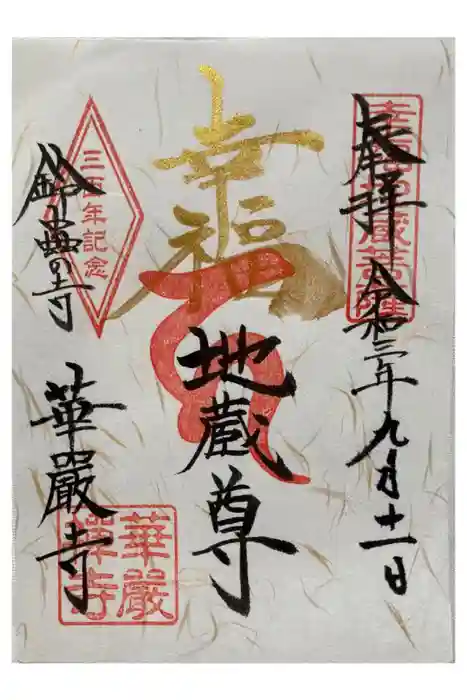 奉拝
令和三年九月十一日
幸福地蔵菩薩
幸福
地蔵尊
三百年記念
鈴蟲の寺
華嚴寺
華嚴
禪寺